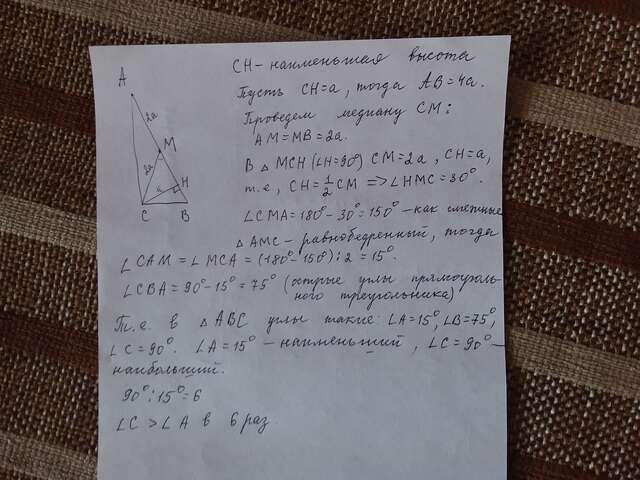 CH - наименьшая высота
Пусть CH=a, тогда AB=4a.
Проведем медиану CM:
AM=MB=2a.
В △ MCH (∠H=90°) CM=2a, CH=a,
т.е. CH=1/2 CM => ∠HMC=30°.
∠CMA=180°-30°=150° - как смежные
△ AMC - равнобедренный, тогда
∠CAM=∠MCA=(180°-150°):2=15°.
∠CBA=90°-15°=75° (острые углы прямоуголь-
ного треугольника)
Т.е. в △ ABC углы такие: ∠A=15°, ∠B=75°,
∠C=90°. ∠A=15° - наименьший, ∠C=90° -
наибольший.
90°:15°=6
∠C > ∠A в 6 раз.
A
2a
M
2a
H
a
B
C